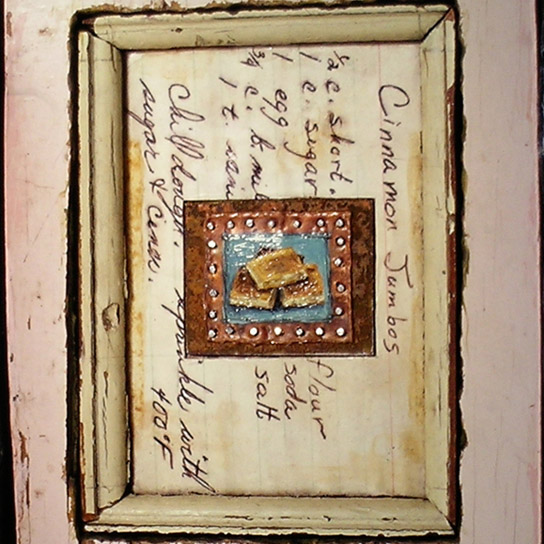 Cinnamon Jumbos
½ c. short. flour
1 c. sugar soda
1 egg salt
¾ c. b. mil
1 t. vani
Chill dough. sprinkle with
sugar & Cinn. 400°F